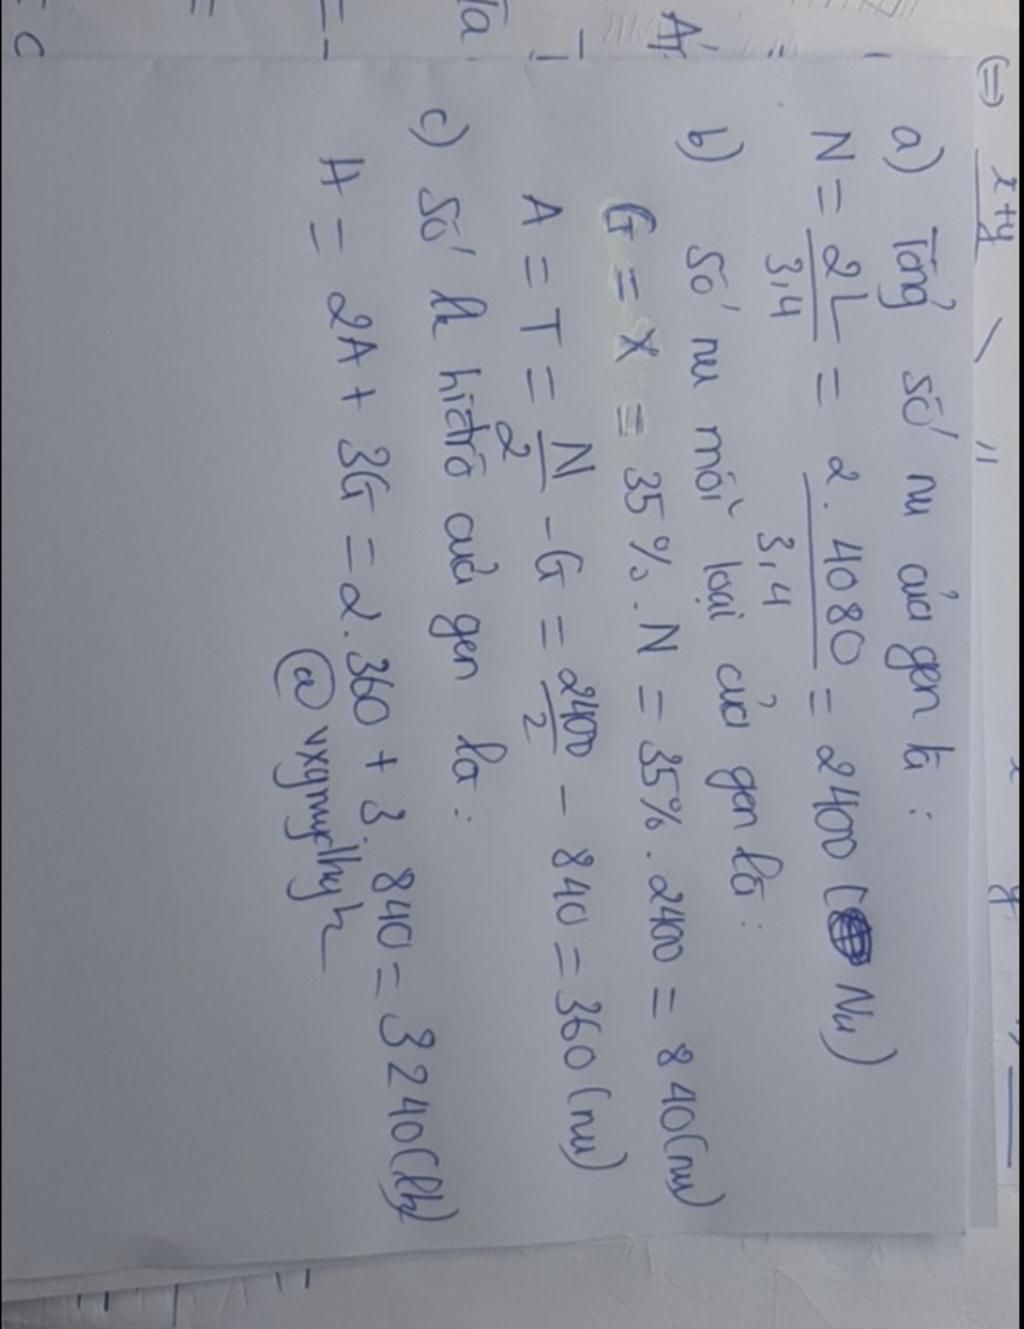 a) Tổng số nu của gen là :
N = 2L/3,4 = 2.4080/3,4 = 2400 (Nu)
b) Số nu mỗi loại của gen là :
G = X = 35%.N = 35%.2400 = 840(nu)
A = T = N/2 - G = 2400/2 - 840 = 360(nu)
c) Số lk hiđrô của gen là :
H = 2A + 3G = 2.360 + 3.840 = 3240(lk)